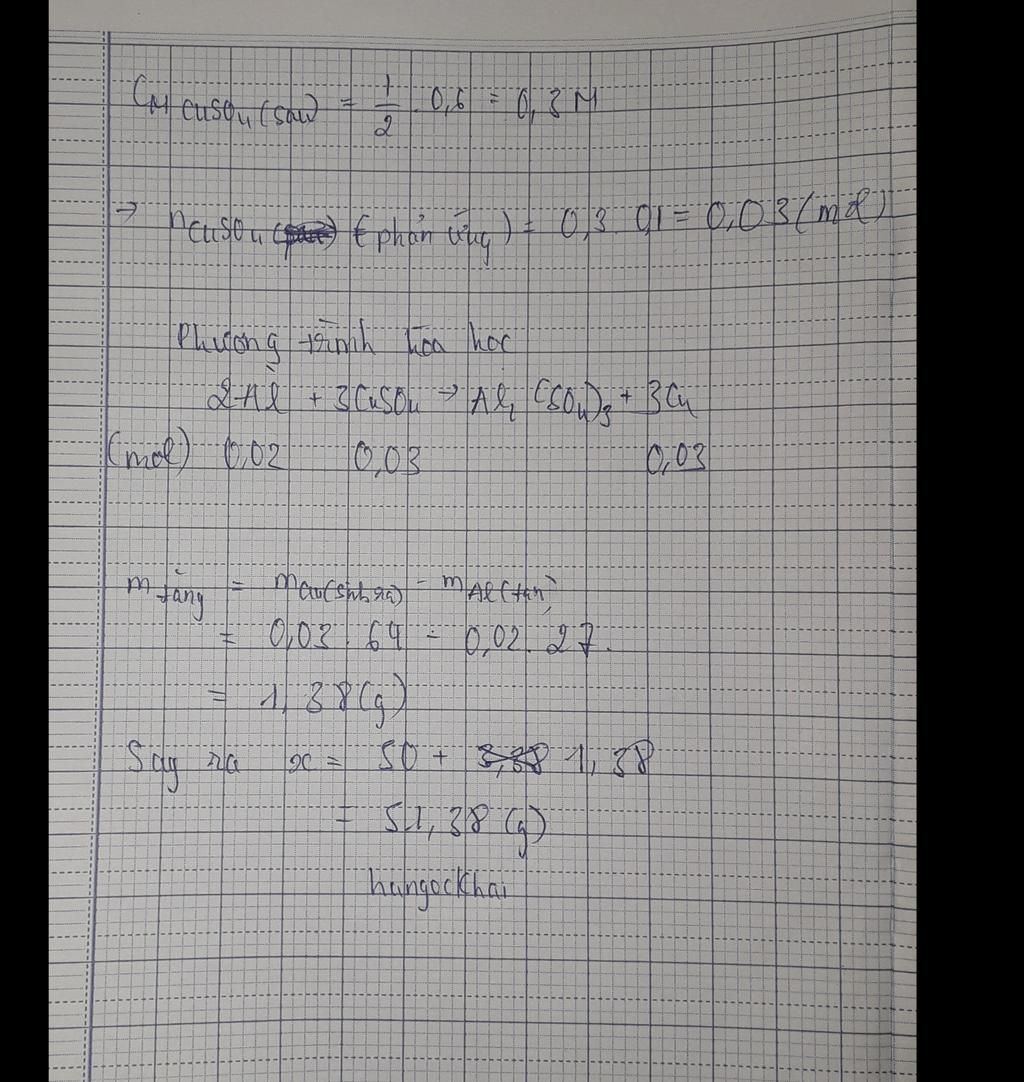 CM CuSO4 (sau) = 1/2 . 0,6 = 0,3 M
→ nCuSO4 (phản ứng) = 0,3 . 0,1 = 0,03 (mol)
Phương trình hóa học
2Al + 3CuSO4 → Al2(SO4)3 + 3Cu
(mol) 0,02 0,03 0,03
m tăng = mCu(sinh ra) - mAl(tan)
= 0,03 . 64 - 0,02 . 27.
= 1,38 (g)
Say ra x = 50 + 1,38
= 51,38 (g)
hungockhai